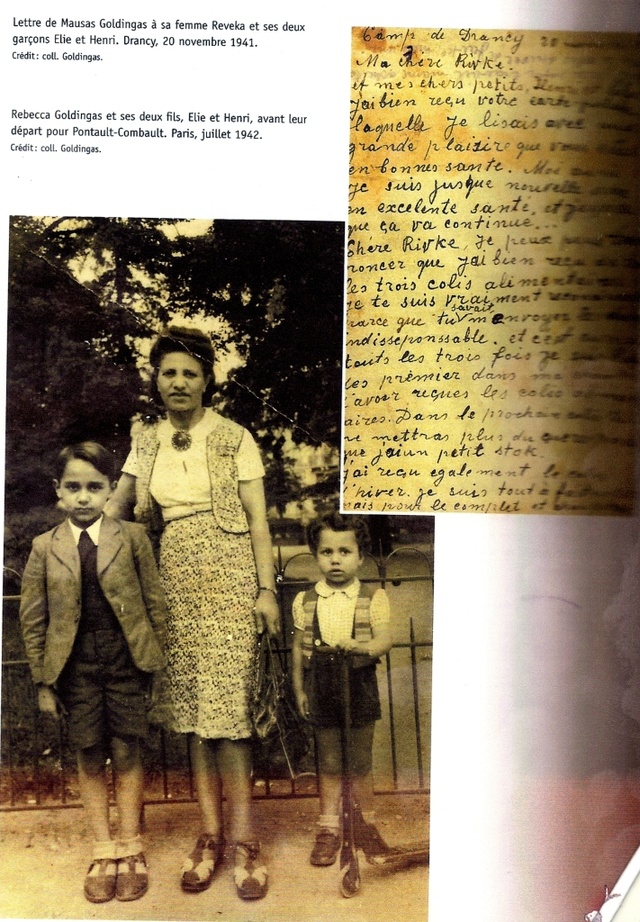 Lettre de Mausas Goldingas à sa femme Reveka et ses deux
garçons Elie et Henri. Drancy, 20 novembre 1941.
Crédit : coll. Goldingas.
Rebecca Goldingas et ses deux fils, Elie et Henri, avant leur
départ pour Pontault-Combault. Paris, juillet 1942.
Crédit : coll. Goldingas.
Camp de Drancy 20
Ma chère Rivke.
et mes chers petits,
j'ai bien reçu votre carte
laquelle je lisais avec
grande plaisire que vous
en bonnes santé. Moi
je suis jusque nouvelle
en excelente santé, et
que ça va continue...
Chère Rivke, Je peux
noncer que j'ai bien reçu
les trois colis alimentaires
je te suis vraiment
parce que tu savait m'envoyer
indisseponssable. et c'est
touts les trois fois je
les prèmier dans
d'avoir reçues les colis
aires. Dans le prochain
ne mettras plus du
que j'ai un petit stok.
j'ai reçu egalement le
l'hiver. je suis tout à fait
mais pour le complet et